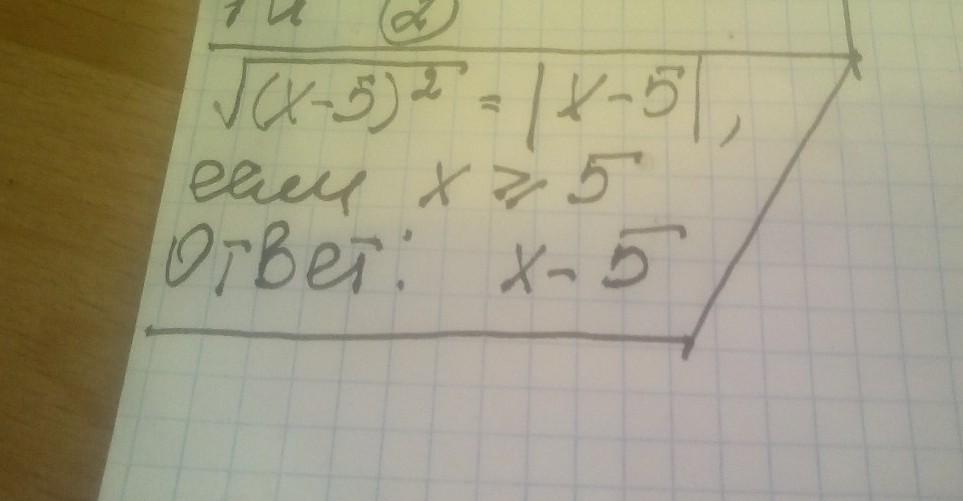 ②
√(x-5)² = |x-5|,
если x ⩾ 5
Ответ: x-5